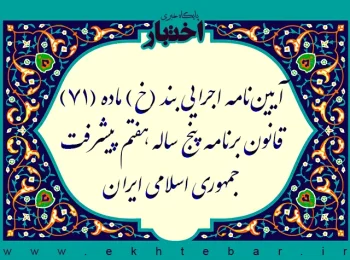 پایگاه خبری
اختبار
آیین‌نامه اجرایی بند (خ) ماده (۷۱)
قانون برنامه پنج ساله هفتم پیشرفت
جمهوری اسلامی ایران
www.ekhtebar.ir